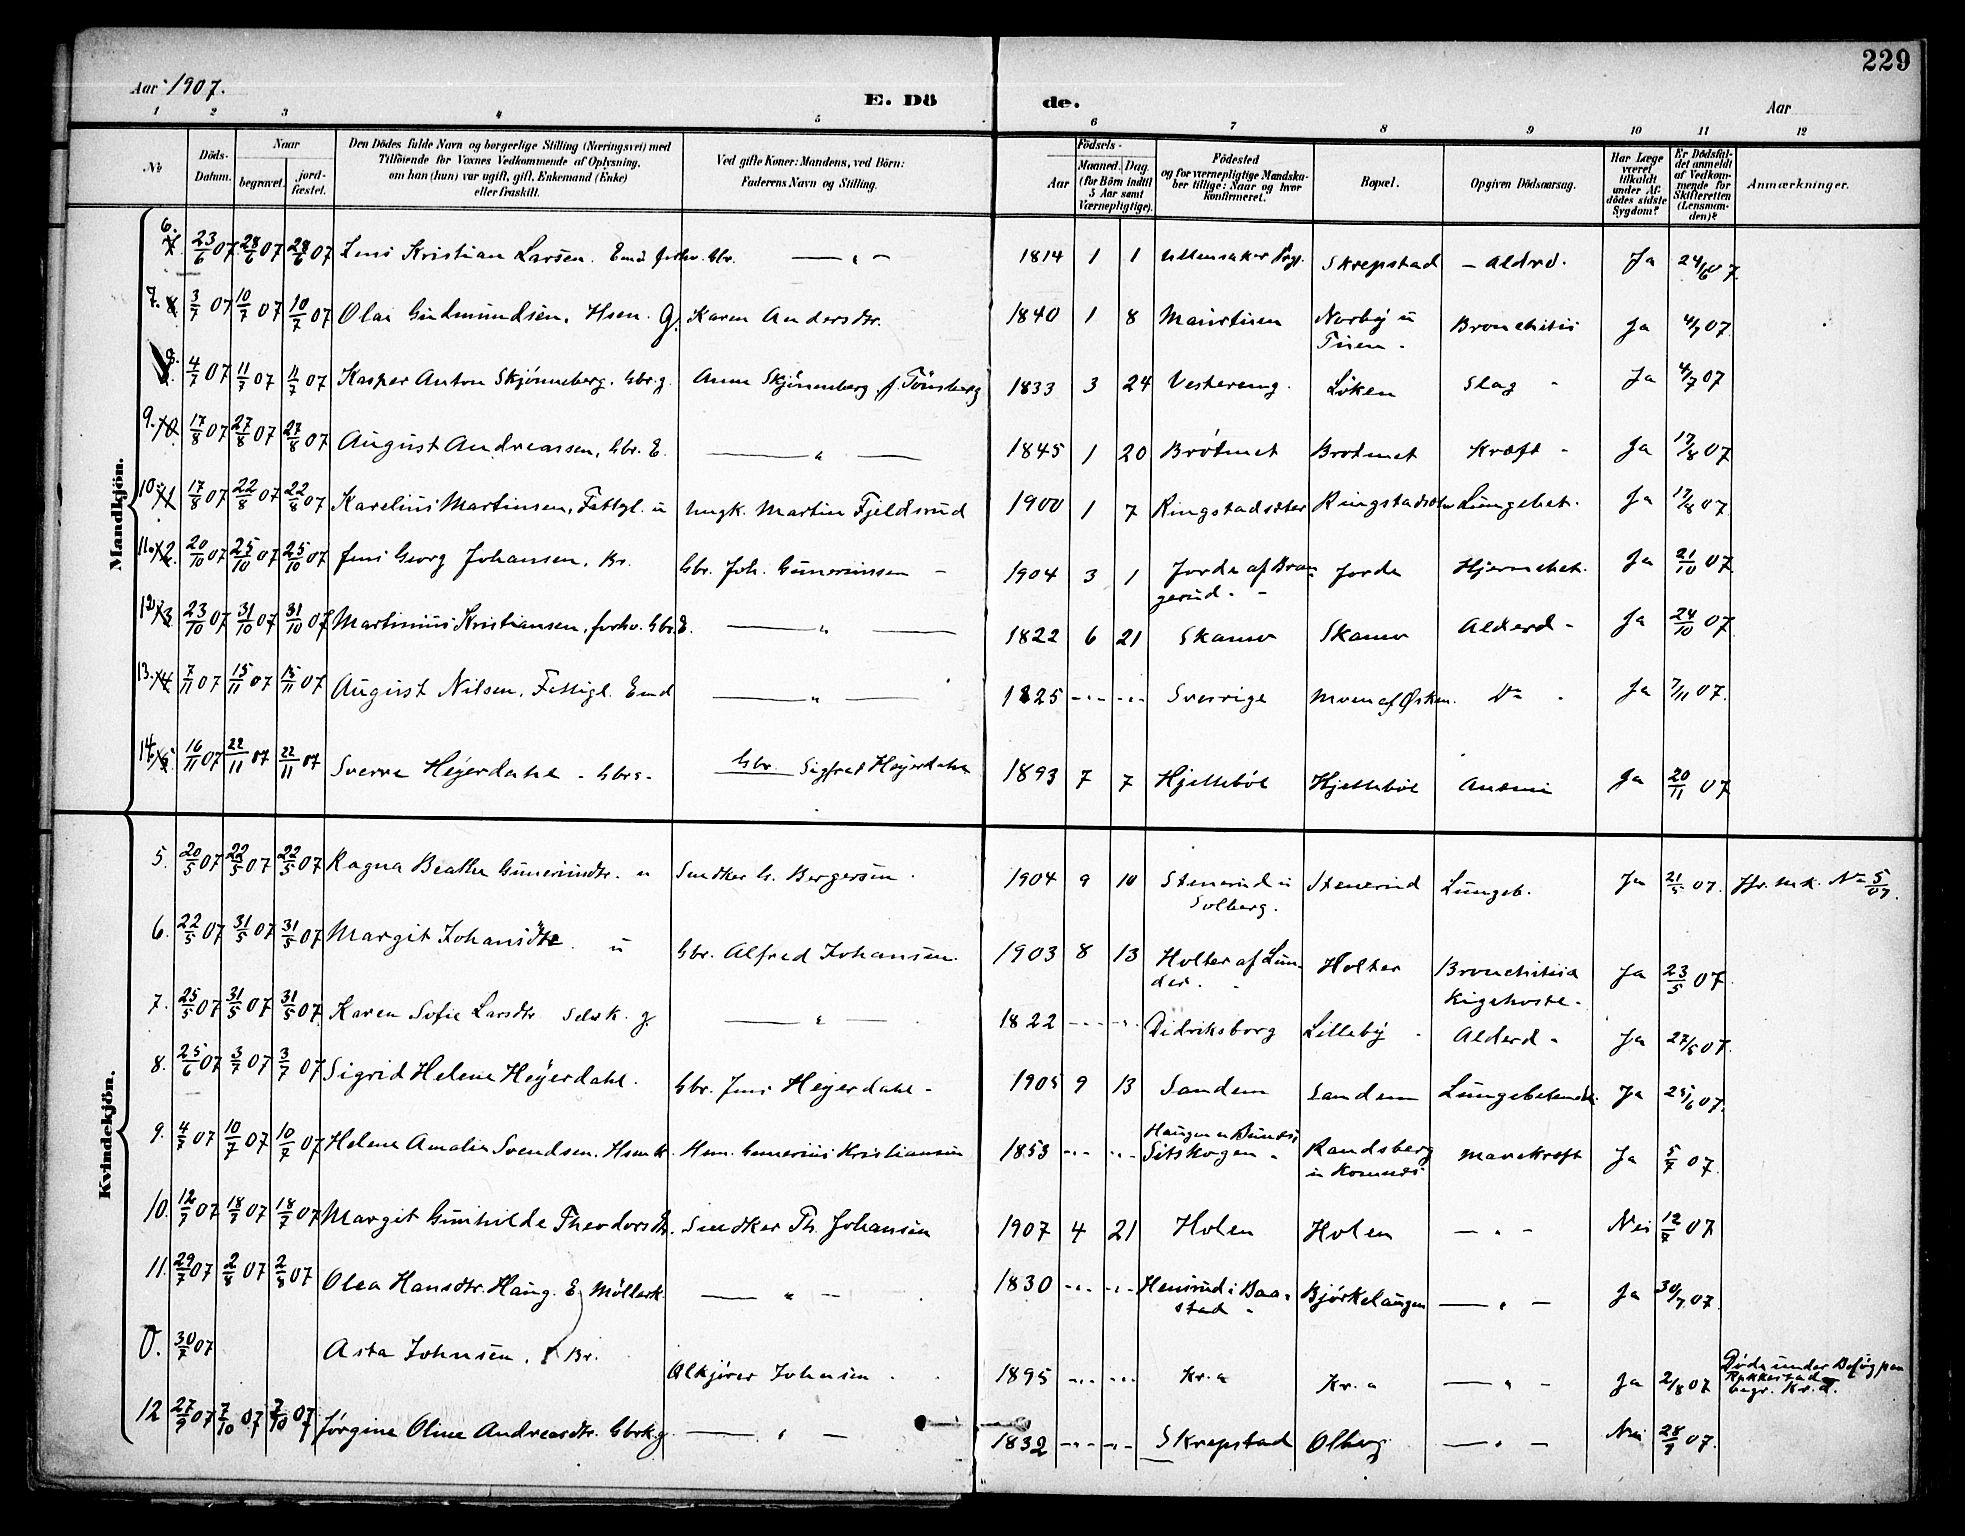 229
Aar 1907.
E. Dö de.
Aar
1 2 3 4 5 6 7 8 9 10 11 12
No
Döds-Datum.
Naar
begravet.
jord-fæstet.
Den Dödes fulde Navn og borgerlige Stilling (Næringsvei) med
Tilföiende for Voxnes Vedkommende af Oplysning,
om han (hun) var ugift, gift, Enkemand (Enke)
eller fraskilt.
Ved gifte Koner: Mandens, ved Börn:
Faderens Navn og Stilling.
Födsels-
Aar
Maaned. Dag.
(for Börn indtil
5 Aar samt
Værnepligtige).
Födested
og for værnepligtige Mandska-
ber tillige: Naar og hvor
konfirmeret.
Bopæl.
Opgiven Dödsaarsag.
Har Læge
været
tilkaldt
under Af-
dödes sidste
Sygdom?
Er Dödsfal-
det anmeldt
af Vedkom-
mende for
Skifteretten
(Lensman-
den)?
Anmærkninger.
Mandkjön.
6. 23/6 07 28/6 07 28/6 07 Jens Kristian Larsen. Emd forhv. Gbr. — „ — 1814 1 1 Ullensaker Skrepstad Aldrd. Ja 24/6 07.
7. 3/7 07 10/7 07 10/7 07 Olai Gudmundsen. Hsm. g. Karen Andersdtr. 1840 1 8 Maurtuen Norby u Bronchitis Ja 4/7 07.
8. 4/7 07 11/7 07 11/7 07 Kasper Anton Skjönneberg. Gbr. g. Anne Skjönneberg f. Tönsberg 1833 3 24 Vestereng. Löken Slag Ja 4/7 07
9. 17/8 07 27/8 07 27/8 07 August Andreassen. Gbr. E. — „ — 1845 1 20 Brötmet Brotmet Kræft Ja 17/8 07
10. 17/8 07 22/8 07 22/8 07 Karelius Martinsen, Fattgl. u ungk. Martin Fjeldsrud 1900 1 7 Ringstadsæter Lungebet. Ja 17/8 07.
11. 20/10 07 25/10 07 25/10 07 Jens Georg Johansen. Br. Gbr. Joh. Gunerinssen 1904 3 1 Jorde af Bran-
gerud Jorde Hjernebet. Ja 21/10 07.
12. 23/10 07 31/10 07 31/10 07 Martinius Kristiansen, forhv. Gbr. E. — „ — 1822 6 21 Skamo Skamo Alderd - Ja 24/10 07.
13. 7/11 07 15/11 07 15/11 07 August Nilsen, Fattigl. Emd — „ — 1825 Sverrige Moen af Øsken. Do Ja 7/11 07.
14. 16/11 07 22/11 07 22/11 07 Sverre Heyerdahl - Gbrs - Gbr. Sigfred Heyerdahl 1893 7 7 Hjellebøl Hjellebøl Anæmi Ja 20/11 07
Kvindekjön.
5. 20/5 07 22/5 07 22/5 07 Ragna Beathe Gunerinsdtr. u Smdker G. Bergersen. 1904 9 10 Stenerud u
Solberg. Stenerud Lungeb. Ja 21/5 07. No 5/07.
6. 22/5 07 31/5 07 31/5 07 Margit Johansdtr. u Gbr. Alfred Johansen. 1903 8 13 Holter af Lun-
der. Holter Bronchitis
Kighoste. Ja 23/5 07.
7. 25/5 07 31/5 07 31/5 07 Karen Sofie Larsdtr g. — „ — 1822 Didriksborg Lilleby Alderd - Ja 27/5 07.
8. 25/6 07 3/7 07 3/7 07 Sigrid Helene Heyerdahl. Gbr. Jens Heyerdahl - 1905 9 13 Sandem Sandem Ja 25/6 07.
9. 4/7 07 10/7 07 10/7 07 Helene Amalie Svendsen. Hsmk. Hsm. Gunerius Kristiansen 1853 Sitskogen Randsberg Mavekræft Ja 5/7 07.
10. 12/7 07 18/7 07 18/7 07 Margit Gunhilde Theodorsdtr. Smdker Th. Johansen 1907 4 21 Holen Holen — „ — Nei 12/7 07
11. 29/7 07 2/8 07 2/8 07 Olea Hansdtr. Haug. E, Möllerk. — „ — 1830 Henirud i Baa-
stad Bjørkelangen — „ — Ja 30/7 07.
0. 30/7 07 Asta Johnsen. Br. Ølkjörer Johnsen 1895 Kr.a Kr.a — „ — Ja 2/8 07 Døde under Besøg paa
Rakkestad
begr. Kr.a.
12 27/9 07 7/10 07 7/10 07 Jørgine Oline Andreasdtr. Gbrk. g. — „ — 1832 Skrepstad Olberg — „ — Nei 28/9 07.